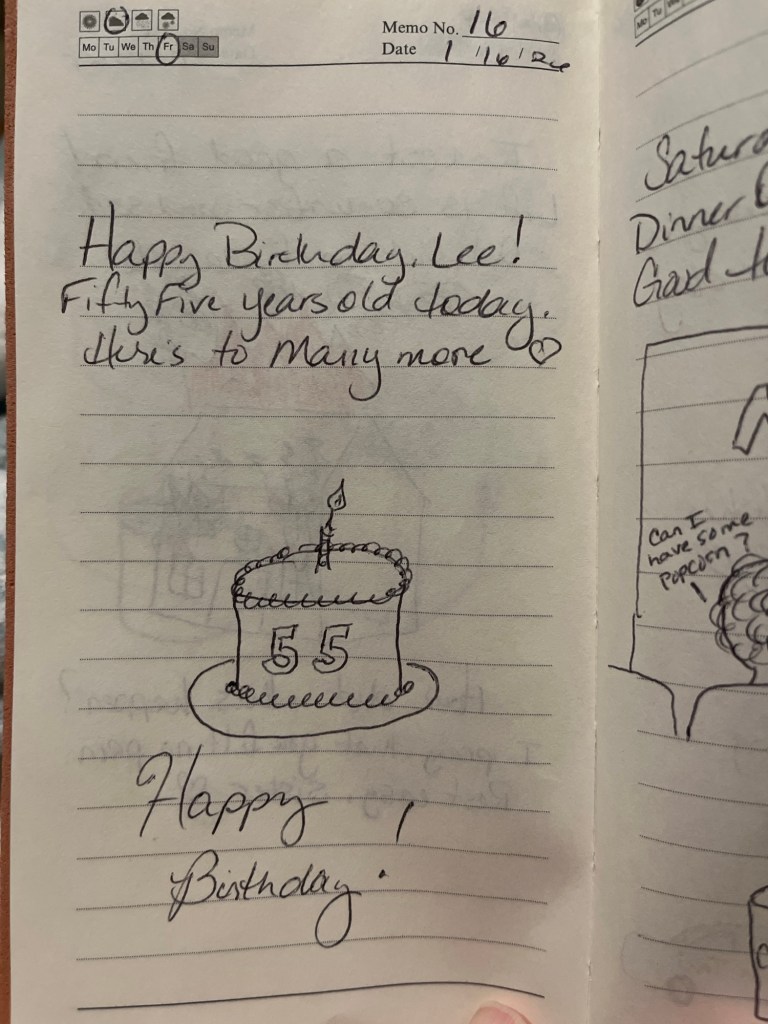 Memo No. 16
Mo Tu We Th Fr Sa Su
Date 1 / 16 / 26
Happy Birthday, Lee!
Fifty Five years old today.
Here's to Many more ♡
55
Happy
Birthday!
Mo Tu We
Dinner
Can I
have some
Popcorn?